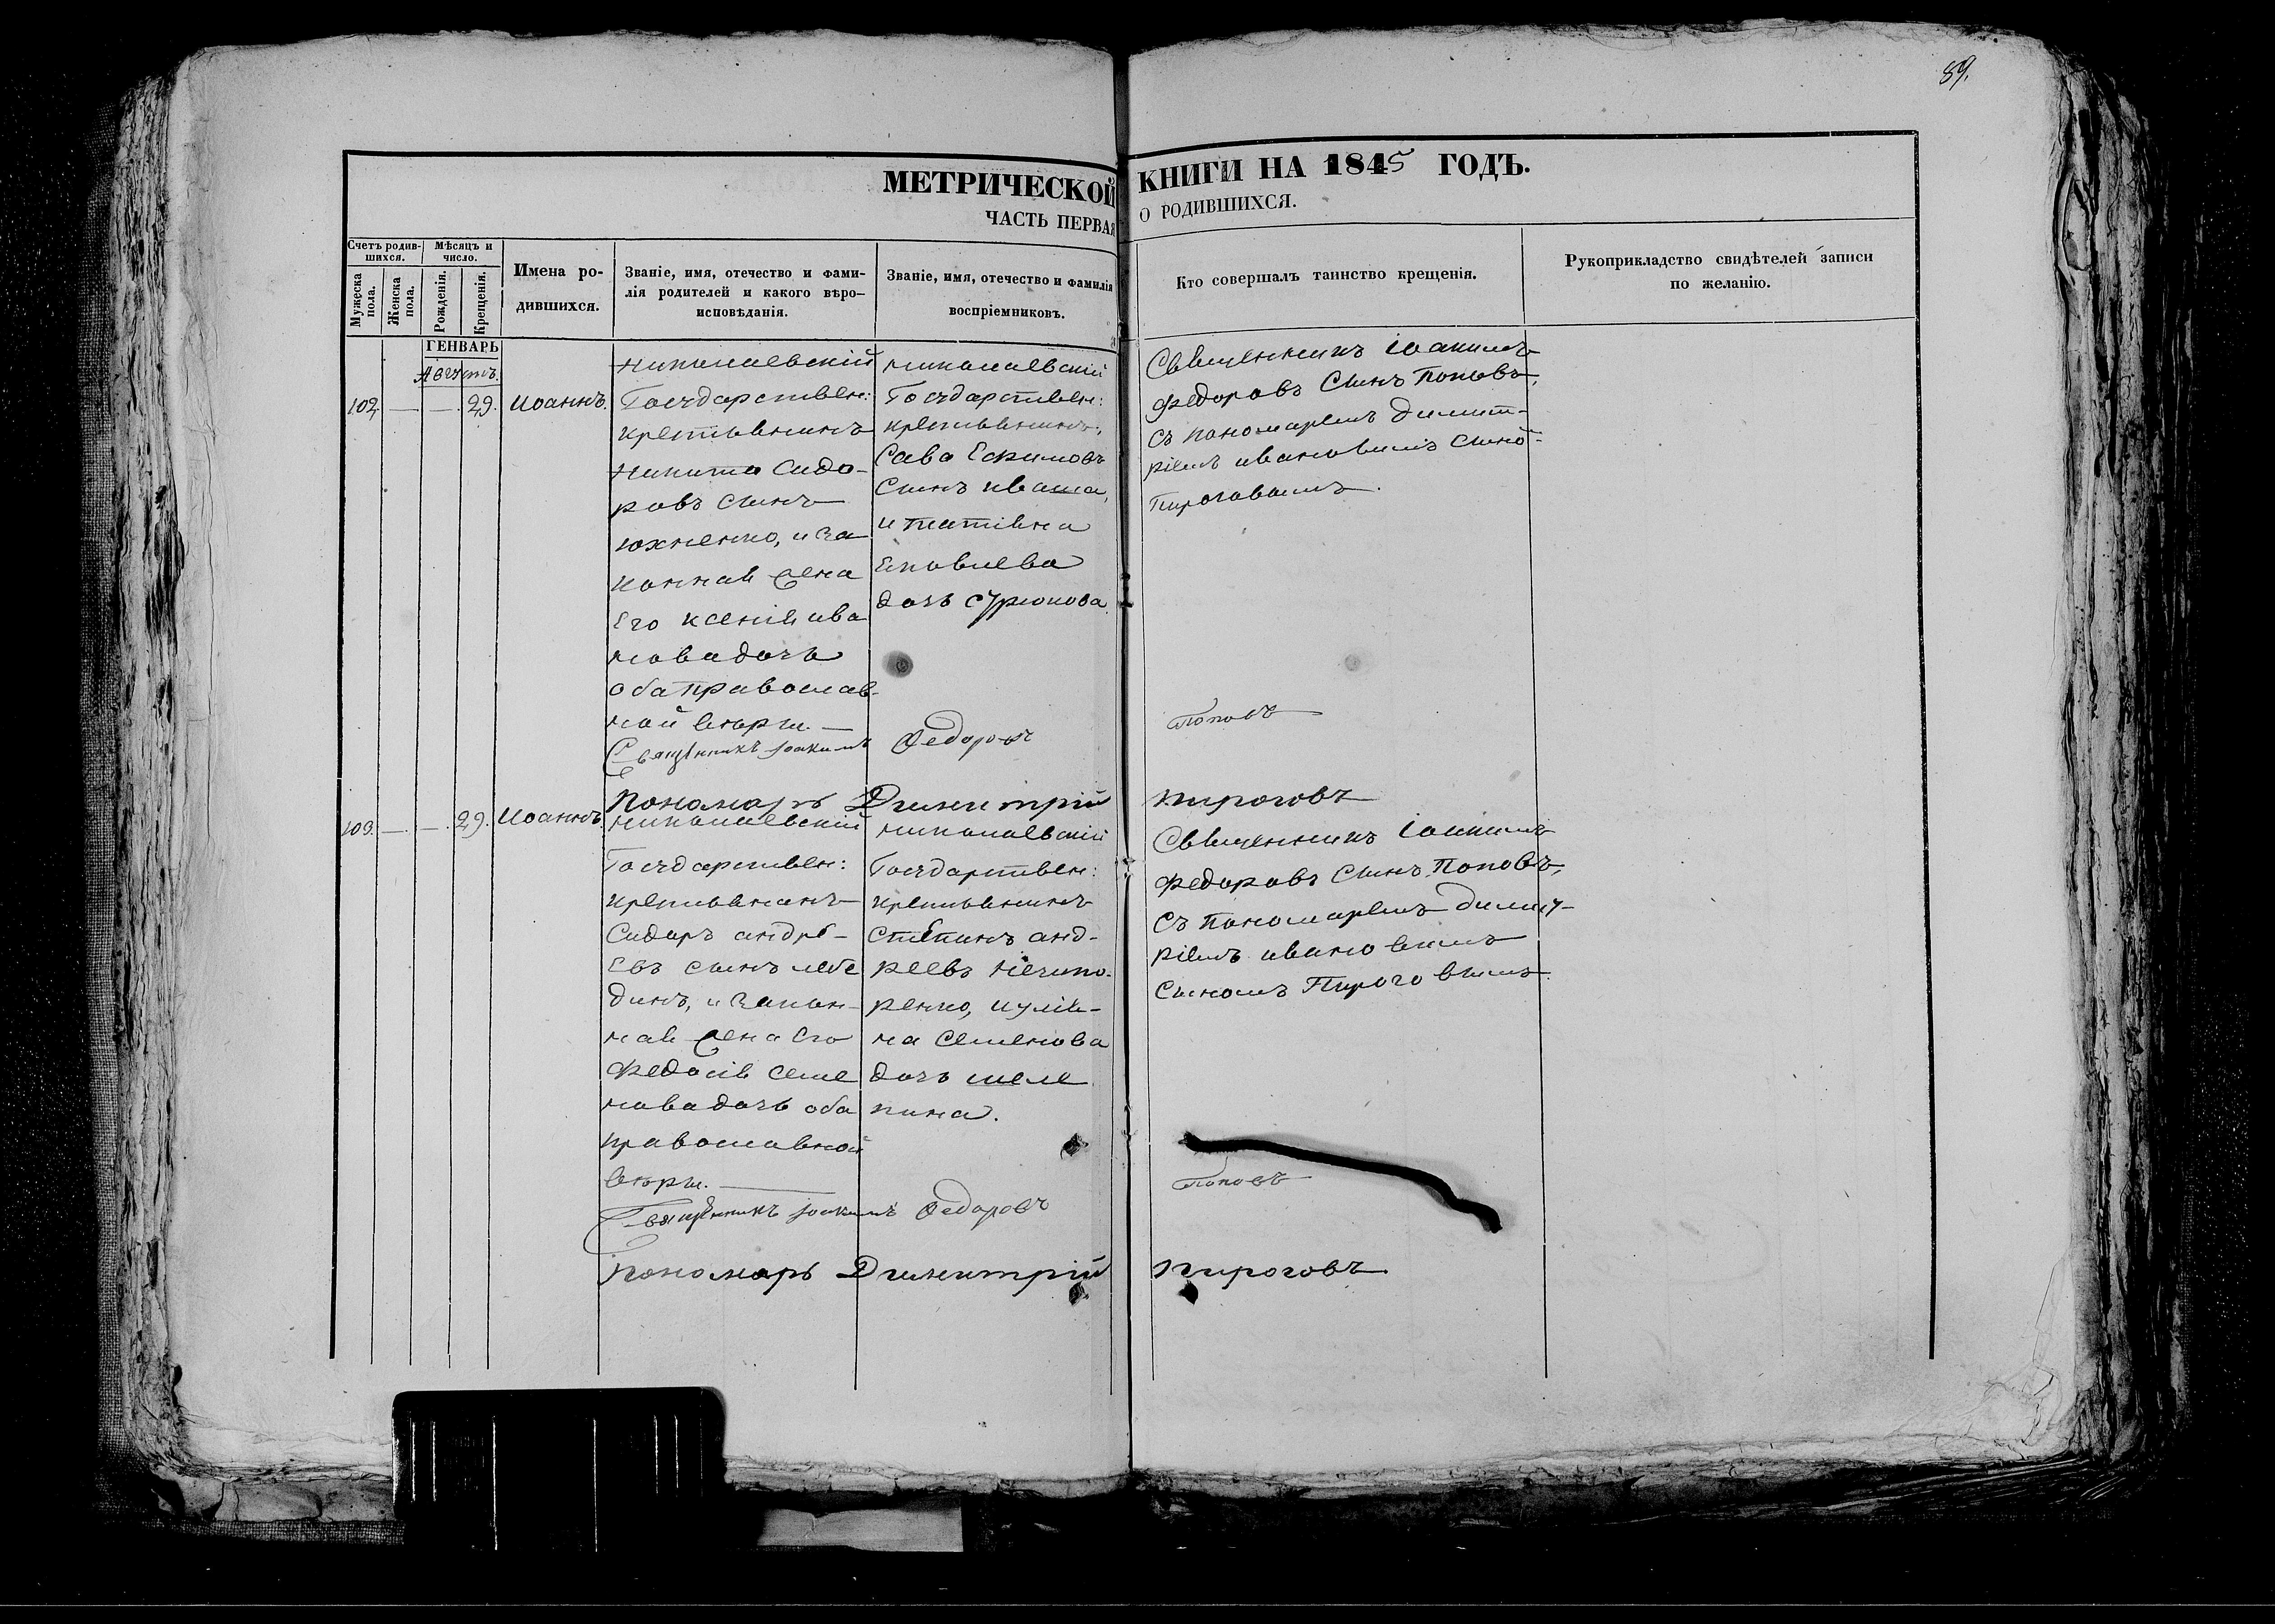 89.
МЕТРИЧЕСКОЙ КНИГИ НА 1845 ГОДЪ.
ЧАСТЬ ПЕРВАЯ О РОДИВШИХСЯ.
Счетъ родив-
шихся.
Мужеска пола.
Женска пола.
Мѣсяцъ и
число.
Рожденія.
Крещенія.
Имена ро-
дившихся.
Званіе, имя, отечество и фами-
лія родителей и какого вѣро-
исповѣданія.
Званіе, имя, отечество и фамилія
воспріемниковъ.
Кто совершалъ таинство крещенія.
Рукоприкладство свидѣтелей записи
по желанію.
ГЕНВАРЬ
Августъ.
102. — — 29. Иоаннъ.
Николаевскій
Государствен:
крестьянинъ
Никита Сидо-
ровъ сынъ
юхненко, и за
конная жена
Его ксенія ива
нова дочь
оба православ-
ной вѣры. —
николаевскій
Государствен:
крестьянинъ,
Сава Ефимовъ
сынъ иваша,
и татіяна
дочь сурюкова.
Священникъ іоакимъ
федоровъ Сынъ Поповъ,
съ пономаремъ димит-
ріемъ ивановымъ сыно-
Пироговымъ.
Священникъ Іоакимъ Федоровъ Поповъ
Пономарь Димитрій Пироговъ
103. — — 29. Иоаннъ.
николаевскій
Государствен:
крестьянинъ
Сидоръ андре-
Евъ сынъ лебе
динъ, и закон-
ная жена Его
Федосія семе
нова дочь оба
православной
вѣры. —
николаевскій
Государствен:
крестьянинъ
Степанъ анд-
реевъ нечипо-
ренко, иулія-
на Семенова
дочь шеле
пина.
Священникъ Іоакимъ
федоровъ Сынъ Поповъ,
съ пономаремъ димит-
ріемъ ивановымъ
сыномъ Пироговымъ.
Священникъ Іоакимъ Федоровъ Поповъ
Пономарь Димитрій Пироговъ